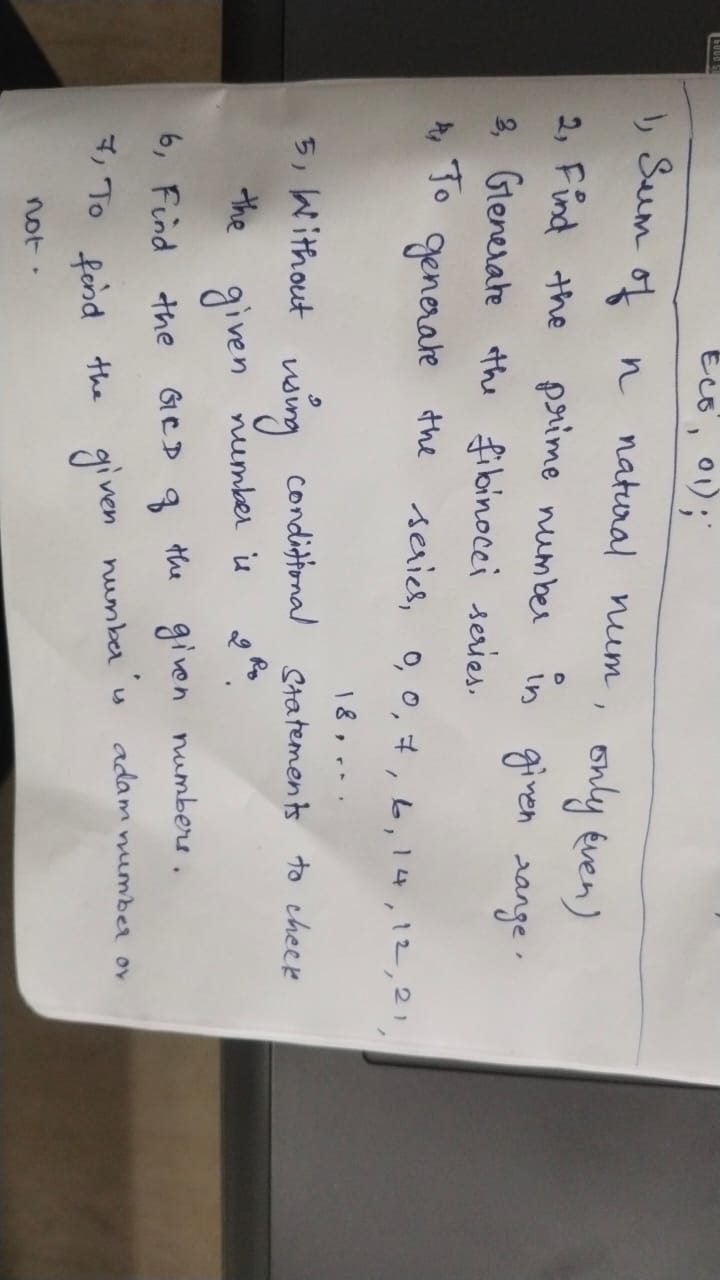 EC6, 01);
1, Sum of n natural num, only (even)
2, Find the prime number in given range.
3, Generate the fibinocci series.
4, To generate the series, 0, 0, 7, 6, 14, 12, 21,
18, ...
5, Without using conditional statements to check
the given number is 2
6, Find the GCD of the given numbers.
7, To find the given number is adam number or
not.